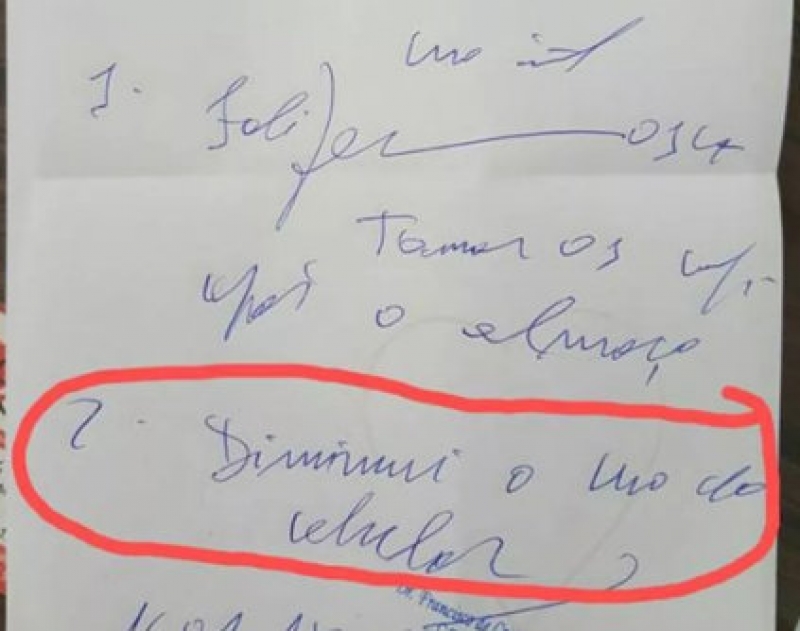 Uso int
1. Folifer 01 cx
Tomar 01 cp.
após o almoço
2. Diminuir o uso do
celular
Dr. Francisco